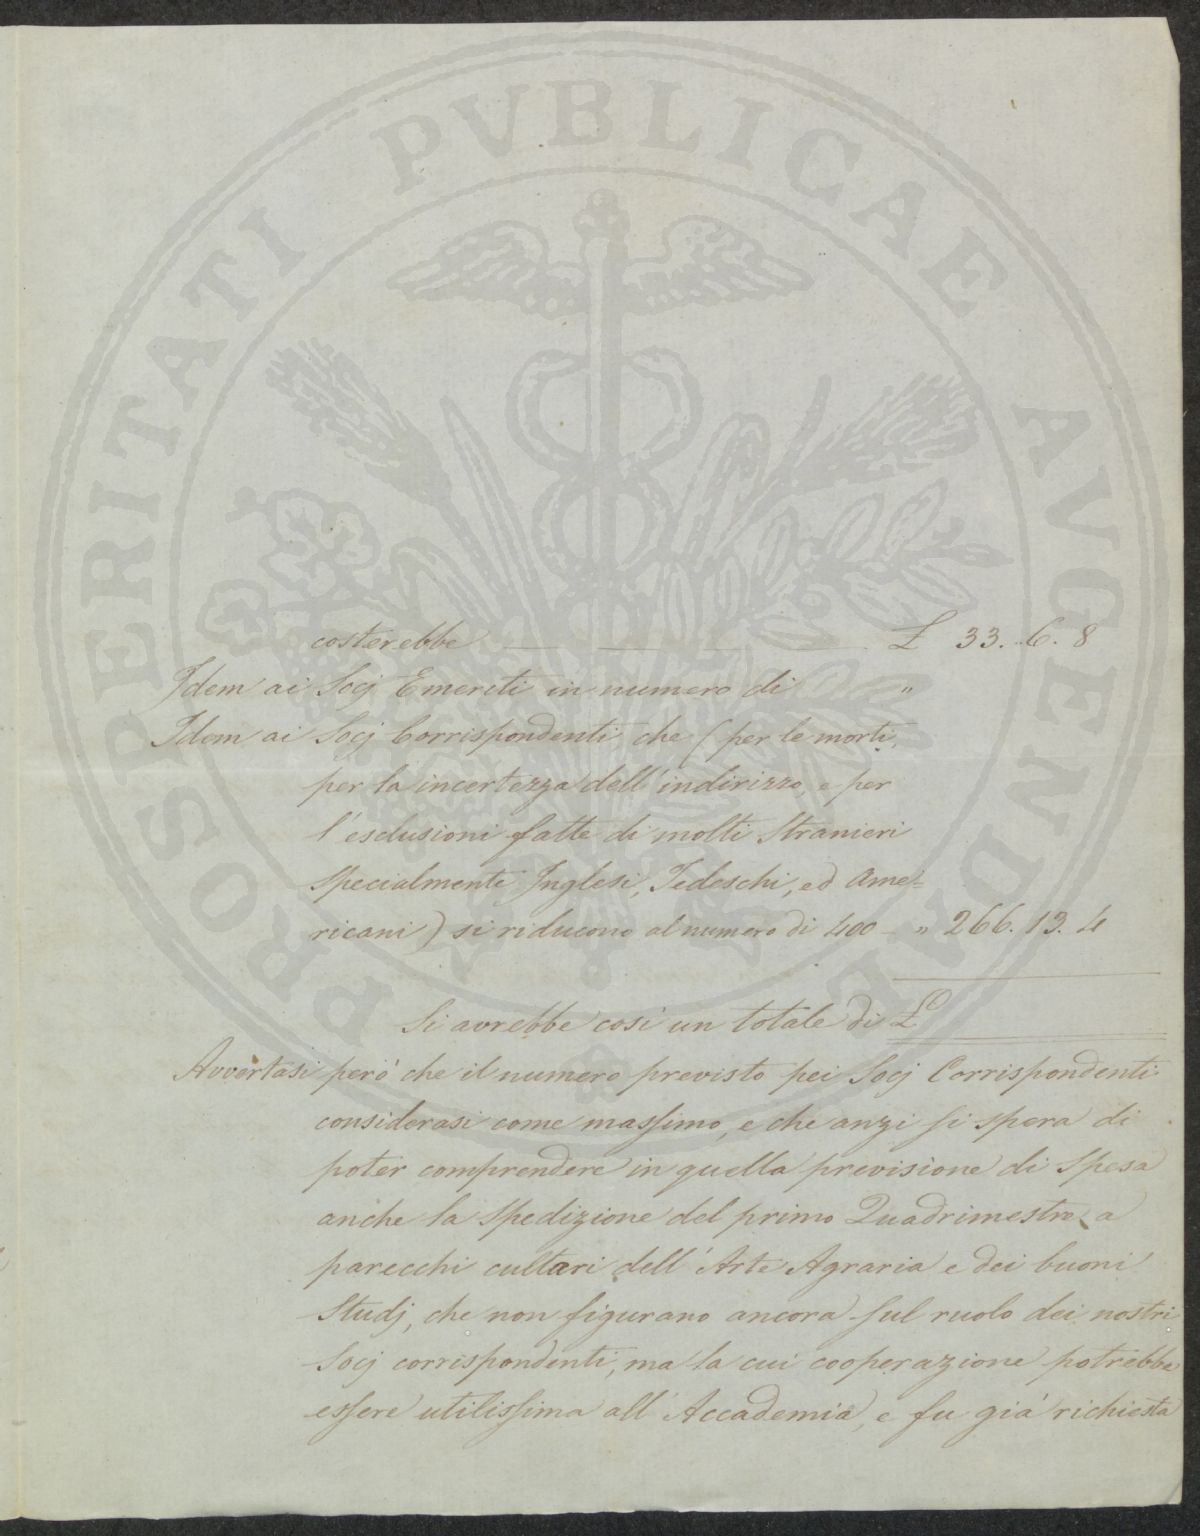 PROSPERITATI PVBLICAE AVGENDAE
costerebbe £ 33. 6. 8
Idem ai Socj Emeriti in numero di "
Idem ai Socj Corrispondenti che (per le morti,
per la incertezza dell'indirizzo, e per
l'esclusioni fatte di molti Stranieri
specialmente Inglesi, Tedeschi, ed Ame=
ricani) si riducono al numero di 400 — " 266. 13. 4
Si avrebbe così un totale di £
Avvertasi però che il numero previsto pei Socj Corrispondenti
considerasi come massimo, e che anzi si spera di
poter comprendere in quella previsione di spesa
anche la spedizione del primo Quadrimestre a
parecchi cultori dell'Arte Agraria e dei buoni
Studj, che non figurano ancora sul ruolo dei nostri
Socj corrispondenti, ma la cui cooperazione potrebbe
essere utilissima all'Accademia, e fu già richiesta